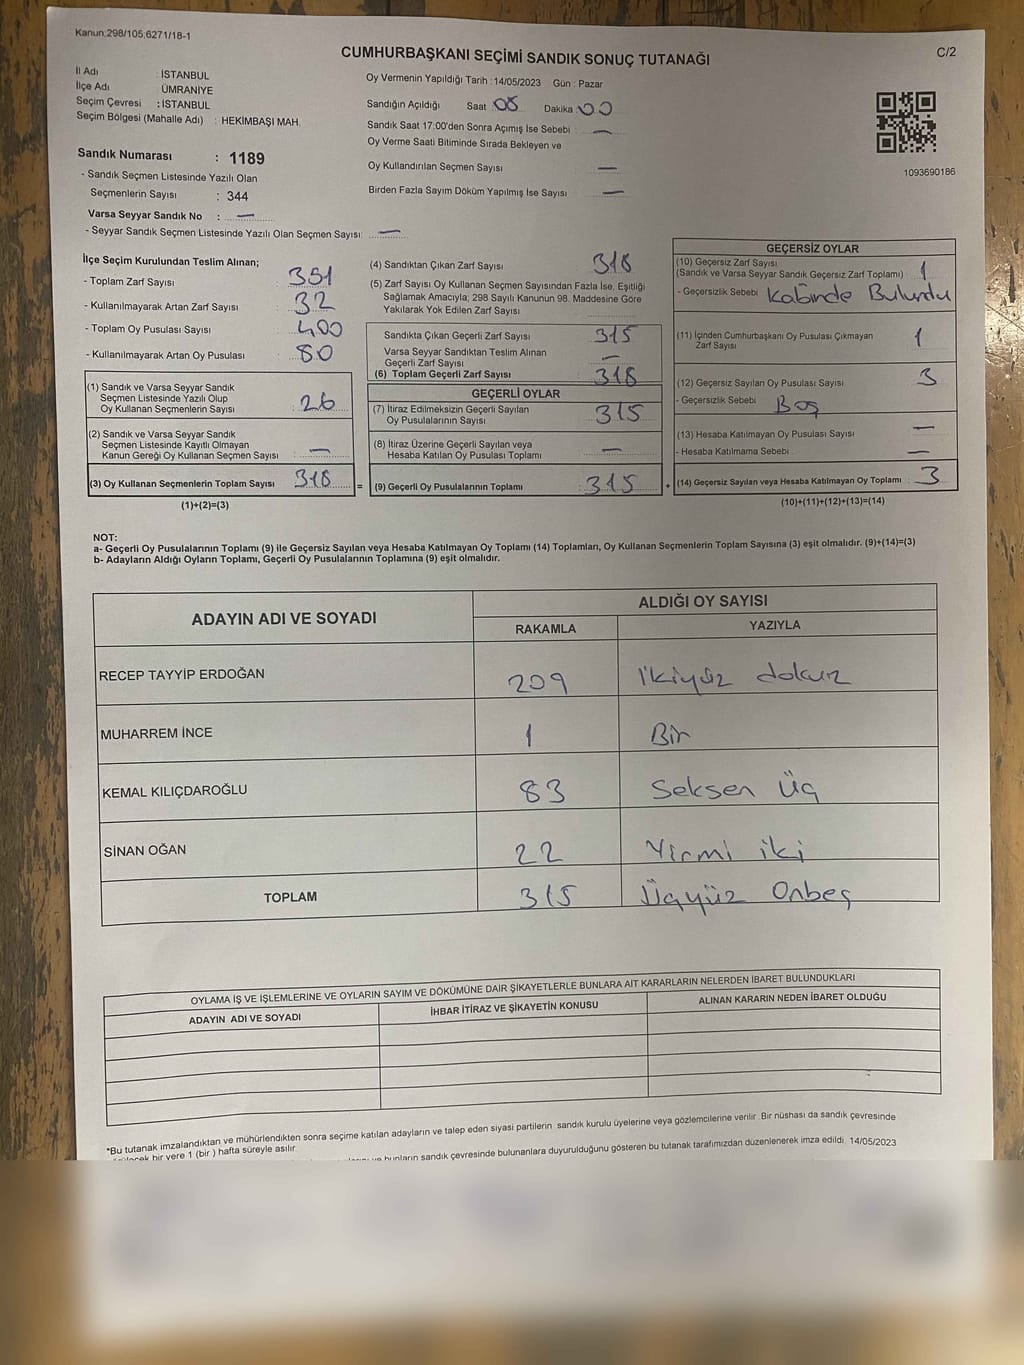 Kanun:298/105;6271/18-1
C/2
CUMHURBAŞKANI SEÇİMİ SANDIK SONUÇ TUTANAĞI
İl Adı : İSTANBUL
İlçe Adı : ÜMRANİYE
Seçim Çevresi : İSTANBUL
Seçim Bölgesi (Mahalle Adı) : HEKİMBAŞI MAH.
Sandık Numarası : 1189
- Sandık Seçmen Listesinde Yazılı Olan
Seçmenlerin Sayısı : 344
Varsa Seyyar Sandık No : —
- Seyyar Sandık Seçmen Listesinde Yazılı Olan Seçmen Sayısı: —
Oy Vermenin Yapıldığı Tarih : 14/05/2023 Gün : Pazar
Sandığın Açıldığı Saat 08 Dakika 00
Sandık Saat 17:00'den Sonra Açımış İse Sebebi : —
Oy Verme Saati Bitiminde Sırada Bekleyen ve
Oy Kullandırılan Seçmen Sayısı —
Birden Fazla Sayım Döküm Yapılmış İse Sayısı —
1093690186
İlçe Seçim Kurulundan Teslim Alınan;
- Toplam Zarf Sayısı : 351
- Kullanılmayarak Artan Zarf Sayısı : 32
- Toplam Oy Pusulası Sayısı : 400
- Kullanılmayarak Artan Oy Pusulası : 80
(1) Sandık ve Varsa Seyyar Sandık
Seçmen Listesinde Yazılı Olup
Oy Kullanan Seçmenlerin Sayısı : 26
(2) Sandık ve Varsa Seyyar Sandık
Seçmen Listesinde Kayıtlı Olmayan
Kanun Gereği Oy Kullanan Seçmen Sayısı : —
(3) Oy Kullanan Seçmenlerin Toplam Sayısı 318
(1)+(2)=(3)
(4) Sandıktan Çıkan Zarf Sayısı 318
(5) Zarf Sayısı Oy Kullanan Seçmen Sayısından Fazla İse, Eşitliği
Sağlamak Amacıyla, 298 Sayılı Kanunun 98. Maddesine Göre
Yakılarak Yok Edilen Zarf Sayısı
Sandıkta Çıkan Geçerli Zarf Sayısı 315
Varsa Seyyar Sandıktan Teslim Alınan
Geçerli Zarf Sayısı —
(6) Toplam Geçerli Zarf Sayısı 318
GEÇERLİ OYLAR
(7) İtiraz Edilmeksizin Geçerli Sayılan
Oy Pusulalarının Sayısı : 315
(8) İtiraz Üzerine Geçerli Sayılan veya
Hesaba Katılan Oy Pusulası Toplamı : —
= (9) Geçerli Oy Pusulalarının Toplamı : 315 +
GEÇERSİZ OYLAR
(10) Geçersiz Zarf Sayısı
(Sandık ve Varsa Seyyar Sandık Geçersiz Zarf Toplamı) : 1
- Geçersizlik Sebebi : Kabinde Bulundu
(11) İçinden Cumhurbaşkanı Oy Pusulası Çıkmayan
Zarf Sayısı 1
(12) Geçersiz Sayılan Oy Pusulası Sayısı 3
- Geçersizlik Sebebi : Boş
(13) Hesaba Katılmayan Oy Pusulası Sayısı —
- Hesaba Katılmama Sebebi —
(14) Geçersiz Sayılan veya Hesaba Katılmayan Oy Toplamı : 3
(10)+(11)+(12)+(13)=(14)
NOT:
a- Geçerli Oy Pusulalarının Toplamı (9) ile Geçersiz Sayılan veya Hesaba Katılmayan Oy Toplamı (14) Toplamları, Oy Kullanan Seçmenlerin Toplam Sayısına (3) eşit olmalıdır. (9)+(14)=(3)
b- Adayların Aldığı Oyların Toplamı, Geçerli Oy Pusulalarının Toplamına (9) eşit olmalıdır.
ADAYIN ADI VE SOYADI ALDIĞI OY SAYISI
RAKAMLA YAZIYLA
RECEP TAYYİP ERDOĞAN 209 İkiyüz dokuz
MUHARREM İNCE 1 Bir
KEMAL KILIÇDAROĞLU 83 Seksen Üç
SİNAN OĞAN 22 Yirmi iki
TOPLAM 315 Üçyüz Onbeş
OYLAMA İŞ VE İŞLEMLERİNE VE OYLARIN SAYIM VE DÖKÜMÜNE DAİR ŞİKAYETLERLE BUNLARA AİT KARARLARIN NELERDEN İBARET BULUNDUKLARI
ADAYIN ADI VE SOYADI İHBAR İTİRAZ VE ŞİKAYETİN KONUSU ALINAN KARARIN NEDEN İBARET OLDUĞU
*Bu tutanak imzalandıktan ve mühürlendikten sonra seçime katılan adayların ve talep eden siyasi partilerin sandık kurulu üyelerine veya gözlemcilerine verilir. Bir nüshası da sandık çevresinde
bir yere 1 (bir) hafta süreyle asılır.
bunların sandık çevresinde bulunanlara duyurulduğunu gösteren bu tutanak tarafımızdan düzenlenerek imza edildi. 14/05/2023